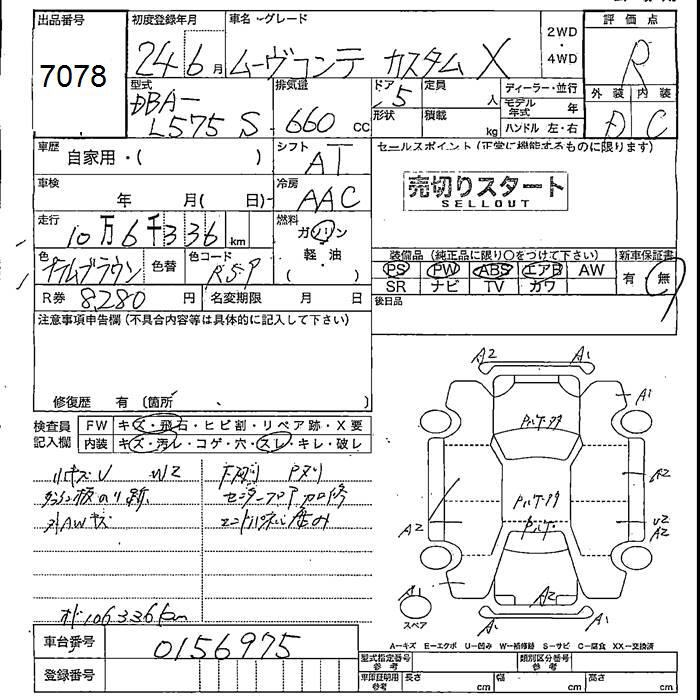 出品番号
7078
初度登録年月
24 6 月
車名・グレード
ムーヴコンテ カスタム X
2WD
・
4WD
評価点
R
型式
DBA-
L575 S
排気量
660 cc
ドア
5
形状
定員
人
積載
kg
ディーラー・並行
モデル年式 年
ハンドル 左・右
外装 内装
D C
車歴
自家用・( )
シフト
AT
セールスポイント(正常に機能するものに限ります)
売切りスタート
SELLOUT
車検
年 月( 日)
冷房
AAC
走行
10万6千336 km
燃料
ガソリン
・
軽・油
( )
色
色替
色コード
R59
装備品(純正品に限り○をつけて下さい)
新車保証書
PS PW ABS エアB AW
SR ナビ TV カワ
有 無
R券 8280 円
名変期限 月 日
後日品
注意事項申告欄(不具合内容等は具体的に記入して下さい)
修復歴 有(箇所 )
検査員
記入欄
FW キズ・飛石・ヒビ割・リペア跡・X要
内装 キズ・汚レ・コゲ・穴・スレ・キレ・破レ
小キズU W2
外AWキズ
オド106336km
A2 A1
A1
A2
U2
A2
A2
A2
A1
A1
A1
スペア
A-キズ E-エクボ U-凹み W-補修跡 S-サビ C-腐食 XX-交換済
車台番号
0156975
登録番号
型式指定番号
参考
類別区分番号
参考
車庫証明用
参考
長さ cm
幅 cm
高さ cm